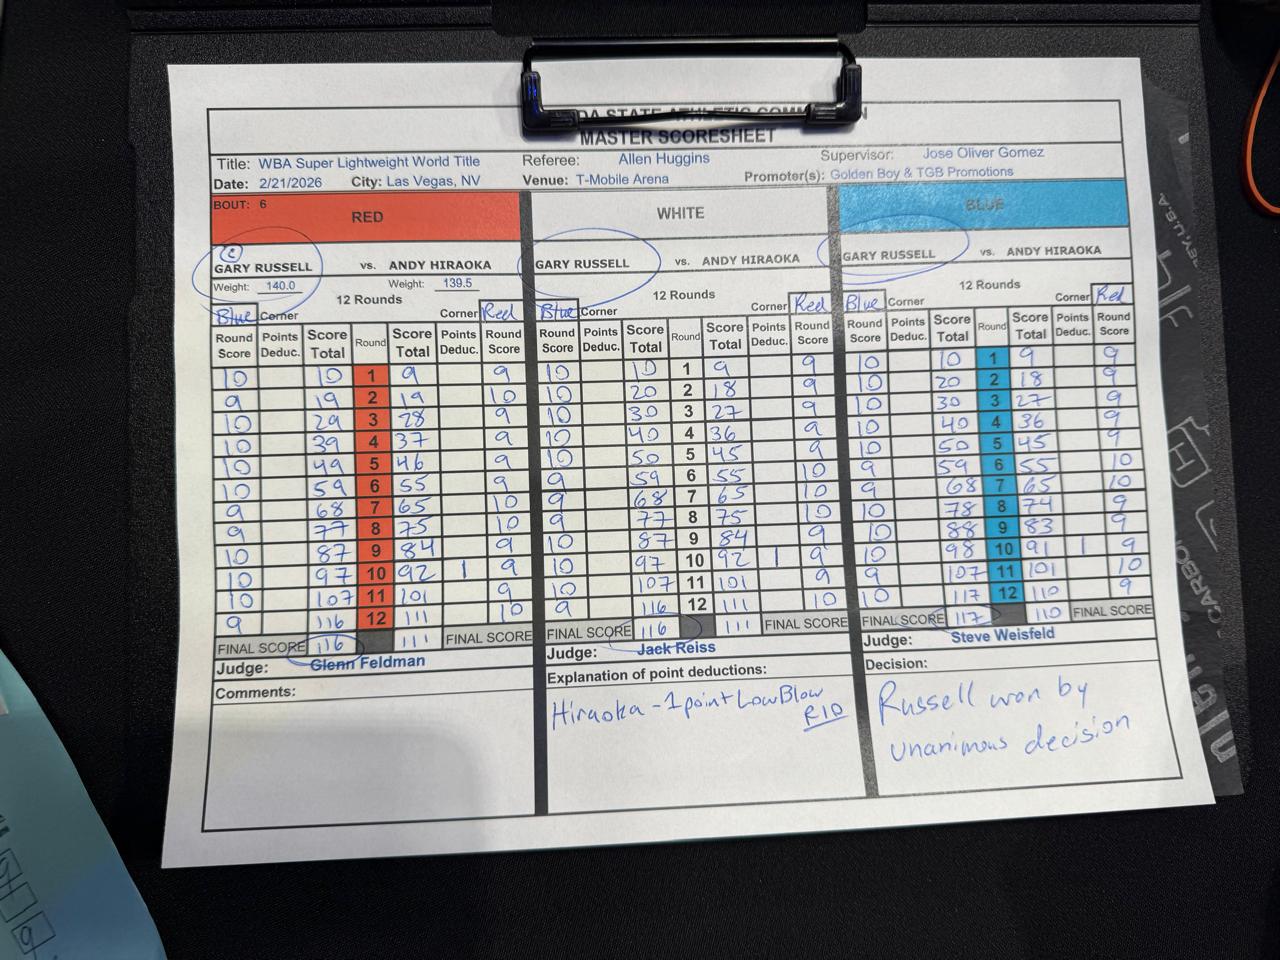 DA STATE ATHLETIC COMM N
MASTER SCORESHEET
Title: WBA Super Lightweight World Title Referee: Allen Huggins Supervisor: Jose Oliver Gomez
Date: 2/21/2026 City: Las Vegas, NV Venue: T-Mobile Arena Promoter(s): Golden Boy & TGB Promotions
BOUT: 6
RED WHITE BLUE
C
GARY RUSSELL vs. ANDY HIRAOKA GARY RUSSELL vs. ANDY HIRAOKA GARY RUSSELL vs. ANDY HIRAOKA
Weight: 140.0 Weight: 139.5
12 Rounds 12 Rounds 12 Rounds
Blue Corner Corner Red Blue Corner Corner Red Blue Corner Corner Red
Round Score Points Deduc. Score Total Round Score Total Points Deduc. Round Score Round Score Points Deduc. Score Total Round Score Total Points Deduc. Round Score Round Score Points Deduc. Score Total Round Score Total Points Deduc. Round Score
10 10 1 9 9 10 10 1 9 9 10 10 1 9 9
9 19 2 19 10 10 20 2 18 9 10 20 2 18 9
10 29 3 28 9 10 30 3 27 9 10 30 3 27 9
10 39 4 37 9 10 40 4 36 9 10 40 4 36 9
10 49 5 46 9 10 50 5 45 9 10 50 5 45 9
10 59 6 55 9 9 59 6 55 10 9 59 6 55 10
9 68 7 65 10 9 68 7 65 10 9 68 7 65 10
9 77 8 75 10 9 77 8 75 10 10 78 8 74 9
10 87 9 84 9 10 87 9 84 9 10 88 9 83 9
10 97 10 92 1 9 10 97 10 92 1 9 10 98 10 91 1 9
10 107 11 101 9 10 107 11 101 9 9 107 11 101 10
9 116 12 111 10 9 116 12 111 10 10 117 12 110 9
FINAL SCORE 116 111 FINAL SCORE FINAL SCORE 116 111 FINAL SCORE FINAL SCORE 117 110 FINAL SCORE
Judge: Glenn Feldman Judge: Jack Reiss Judge: Steve Weisfeld
Comments: Explanation of point deductions: Decision:
Hiraoka - 1 point Low Blow
R10
Russell won by
unanimous decision